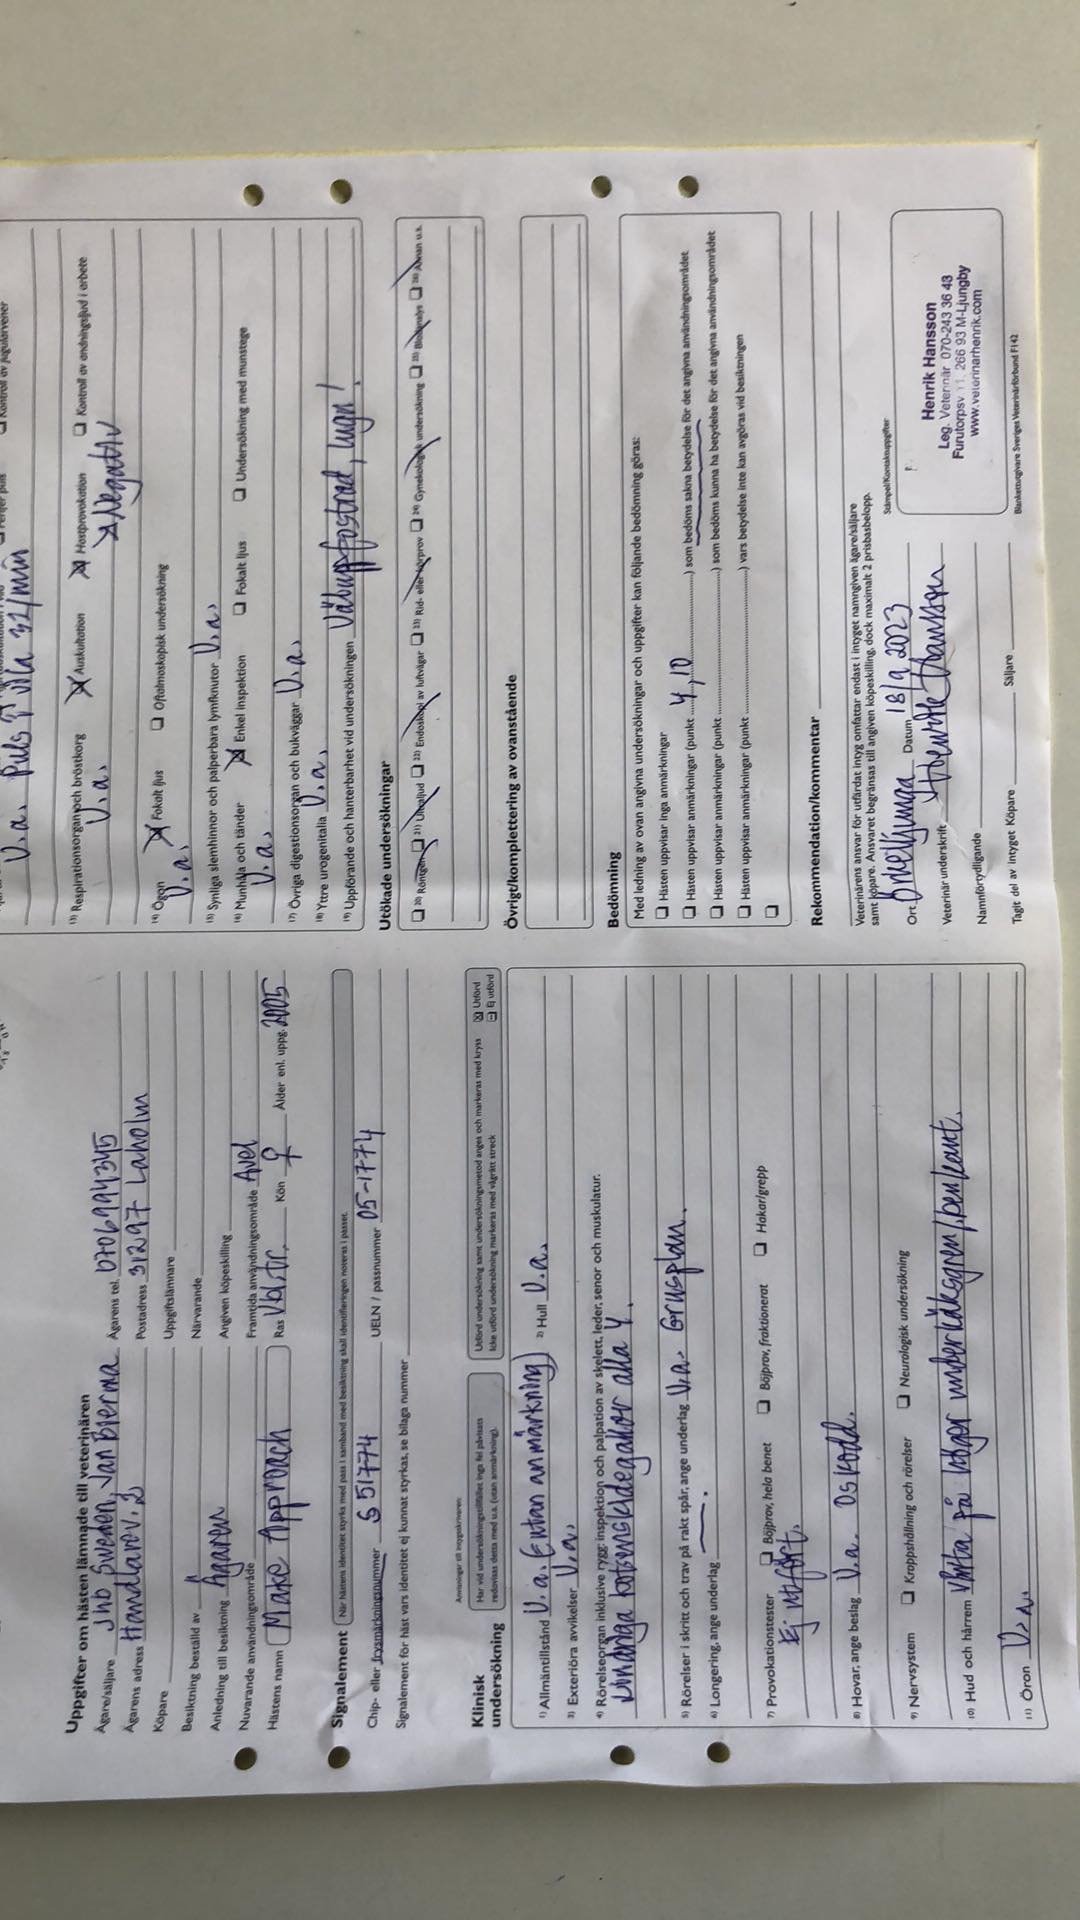 Uppgifter om hästen lämnade till veterinären
Ägare/säljare JHB Sweden, van Bierma Ägarens tel. 0706994345
Ägarens adress Handlarev. 2 Postadress 31297 Laholm
Köpare Uppgiftslämnare
Besiktning beställd av Närvarande
Anledning till besiktning Ägaren Angiven köpeskilling
Nuvarande användningsområde Framtida användningsområde Avel
Hästens namn Make Approach Ras Vbl.tr. Kön ♀ Ålder enl. uppg. 2005
Signalement När hästens identitet styrks med pass i samband med besiktning skall identifieringen noteras i passet.
Chip- eller frysmärkningsnummer S 51774 UELN / passnummer 05-1774
Signalement för häst vars identitet ej kunnat styrkas, se bilaga nummer
Anvisningar till intygsskrivaren:
Klinisk undersökning
Har vid undersökningstillfället inga fel påvisats
redovisas detta med u.a. (utan anmärkning).
Utförd undersökning samt undersökningsmetod anges och markeras med kryss ☒ Utförd
Icke utförd undersökning markeras med vågrätt streck ⊟ Ej utförd
1) Allmäntillstånd U.a. (utan anmärkning) 2) Hull U.a.
3) Exteriöra avvikelser U.a.
4) Rörelseorgan inklusive rygg: inspektion och palpation av skelett, leder, senor och muskulatur.
Lindriga kotsenskidegallor alla 4.
5) Rörelser i skritt och trav på rakt spår, ange underlag U.a. Grusplan.
6) Longering, ange underlag —.
7) Provokationstester ☐ Böjprov, hela benet ☐ Böjprov, fraktionerat ☐ Hakar/grepp
Ej utfört.
8) Hovar, ange beslag U.a. Oskodd.
9) Nervsystem ☐ Kroppshållning och rörelser ☐ Neurologisk undersökning
10) Hud och hårrem Vårta på höger underkäksgren/benkant.
11) Öron U.a.
U.a. Puls i vila 32/min
13) Respirationsorgan och bröstkorg ☒ Auskultation ☒ Hostprovokation ☐ Kontroll av andningsljud i arbete
U.a. Negativ
14) Ögon ☒ Fokalt ljus ☐ Oftalmoskopisk undersökning
U.a.
15) Synliga slemhinnor och palperbara lymfknutor U.a.
16) Munhåla och tänder ☒ Enkel inspektion ☐ Fokalt ljus ☐ Undersökning med munstege
U.a.
17) Övriga digestionsorgan och bukväggar U.a.
18) Yttre urogenitalia U.a.
19) Uppförande och hanterbarhet vid undersökningen Väluppfostrad, lugn!
Utökade undersökningar
☐ 20) Röntgen ☐ 21) Ultraljud ☐ 22) Endoskopi av luftvägar ☐ 23) Rid- eller körprov ☐ 24) Gynekologisk undersökning ☐ 25) Blodanalys ☐ 26) Annan u.s.
Övrigt/komplettering av ovanstående
Bedömning
Med ledning av ovan angivna undersökningar och uppgifter kan följande bedömning göras:
☐ Hästen uppvisar inga anmärkningar
☐ Hästen uppvisar anmärkningar (punkt 4, 10) som bedöms sakna betydelse för det angivna användningsområdet
☐ Hästen uppvisar anmärkningar (punkt) som bedöms kunna ha betydelse för det angivna användningsområdet
☐ Hästen uppvisar anmärkningar (punkt) vars betydelse inte kan avgöras vid besiktningen
☐
Rekommendation/kommentar
Veterinärens ansvar för utfärdat intyg omfattar endast i intyget namngiven ägare/säljare
samt köpare. Ansvaret begränsas till angiven köpeskilling, dock maximalt 2 prisbasbelopp.
Ort Örkelljunga Datum 18/9 2023
Veterinär underskrift Henrik Hansson
Namnförtydligande
Tagit del av intyget Köpare Säljare
Stämpel/Kontaktuppgifter
Henrik Hansson
Leg. Veterinär 070-243 36 43
Furutorpsv 11, 266 93 M-Ljungby
www.veterinarhenrik.com
Blankettutgivare Sveriges Veterinärförbund F142